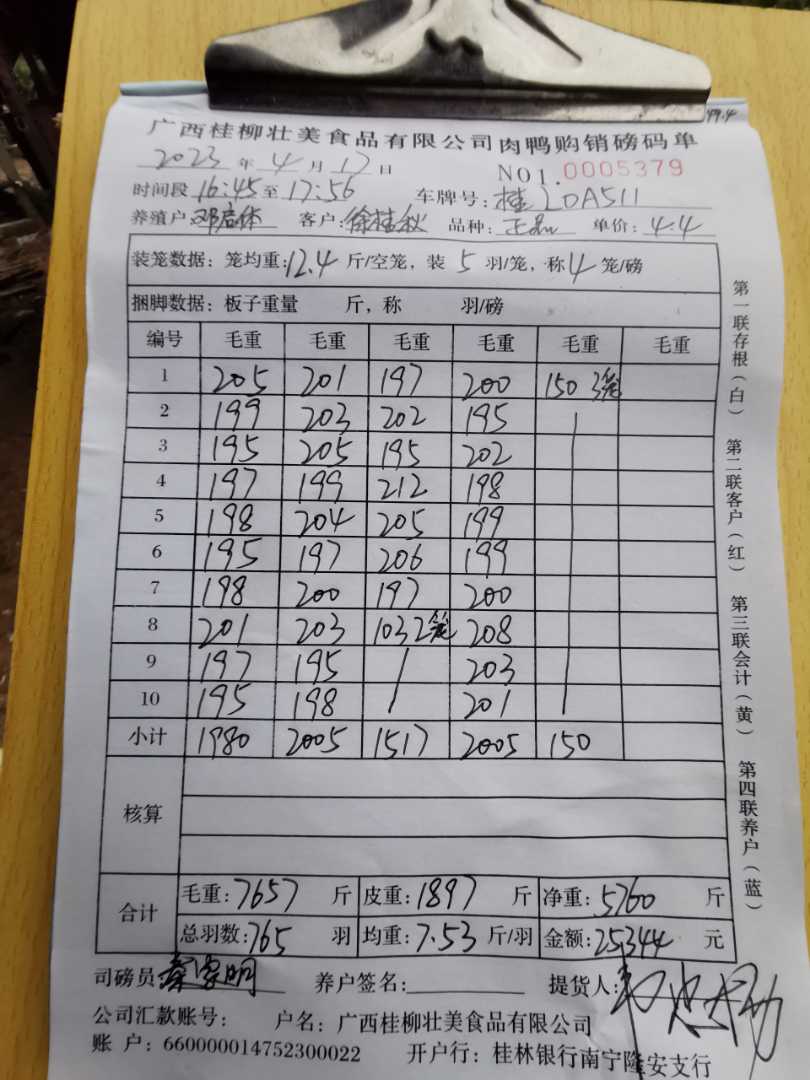 99.4
广西桂柳壮美食品有限公司肉鸭购销磅码单
2023年4月17日 NO1.0005379
时间段16:45至17:56 车牌号:桂LDA511
养殖户: 客户:徐桂秋 品种:正品 单价:4.4
装笼数据:笼均重:12.4斤/空笼,装5羽/笼,称4笼/磅
捆脚数据:板子重量 斤,称 羽/磅
编号 毛重 毛重 毛重 毛重 毛重 毛重
1 205 201 197 200 150 3笼
2 199 203 202 195
3 195 205 195 202
4 197 199 212 198
5 198 204 205 199
6 195 197 206 199
7 198 200 197 200
8 201 203 103 2笼 208
9 197 195 / 203
10 195 198 / 201
小计 1980 2005 1517 2005 150
核算
合计
毛重:7657斤 皮重:1897斤 净重:5760斤
总羽数:765羽 均重:7.53斤/羽 金额:25344元
司磅员 养户签名: 提货人:
公司汇款账号: 户名:广西桂柳壮美食品有限公司
账户:660000014752300022 开户行:桂林银行南宁隆安支行
第一联存根(白) 第二联客户(红) 第三联会计(黄) 第四联养户(蓝)